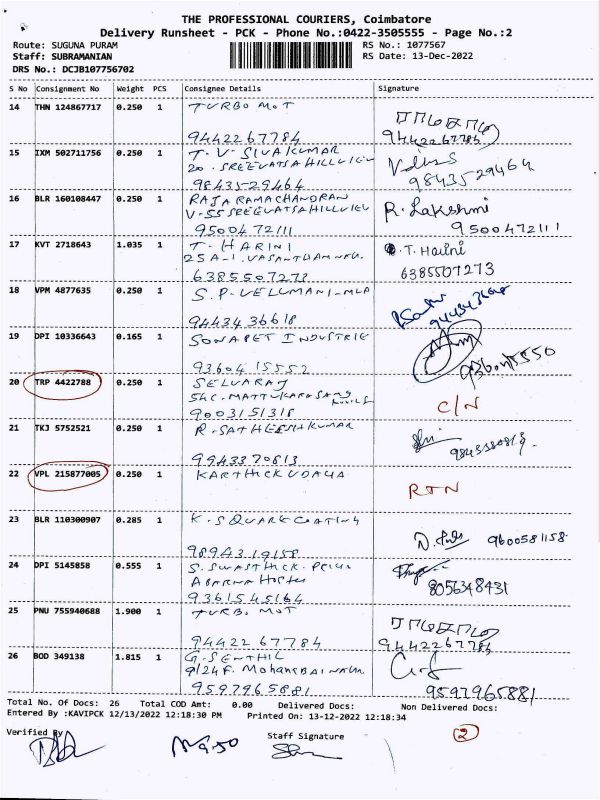 THE PROFESSIONAL COURIERS, Coimbatore
Delivery Runsheet - PCK - Phone No.:0422-3505555 - Page No.:2
Route: SUGUNA PURAM RS No.: 1077567
Staff: SUBRAMANIAN RS Date: 13-Dec-2022
DRS No.: DCJB107756702
S No Consignment No Weight PCS Consignee Details Signature
14 THN 124867717 0.250 1 TURBO MOT
9442267784 9442267784
15 IXM 502711756 0.250 1 T. V. SIVAKUMAR
20. SREEVATSA HILLVIEW
9843529464 9843529464
16 BLR 160108447 0.250 1 RAJA RAMACHANDRAN R. Lakshmi
V-55 SREEVATSA HILLVIEW
9500472111 9500472111
17 KVT 2718643 1.035 1 T. HARINI T. Harini
25A-1. VASANTHAM NAGAR
6385507273 6385507273
18 VPM 4877635 0.250 1 S. P. VELUMANI-MLA
9443436618
19 DPI 10336643 0.165 1 SONAPET INDUSTRIE
9360415552
20 TRP 4422788 0.250 1 SELVARAJ C/N
9003151318
21 TKJ 5752521 0.250 1 R. SATHEESHKUMAR
9943370813
22 VPL 215877005 0.250 1 KARTHICK UDAYA RTN
23 BLR 110300907 0.285 1 K. SQUARE COATING
9894319158 9600581158
24 DPI 5145858 0.555 1 S. SWASTHICK. PRIYA
8056348431
9361545164
25 PNU 755940688 1.900 1 TURBO MOT
9442267784 9442267784
26 BOD 349138 1.815 1 G. SENTHIL
9/24F. MOHANSBAI NAGAR
9597965881 9597965881
Total No. Of Docs: 26 Total COD Amt: 0.00 Delivered Docs: Non Delivered Docs:
Entered By :KAVIPCK 12/13/2022 12:18:30 PM Printed On: 13-12-2022 12:18:34
Verified By Staff Signature 2